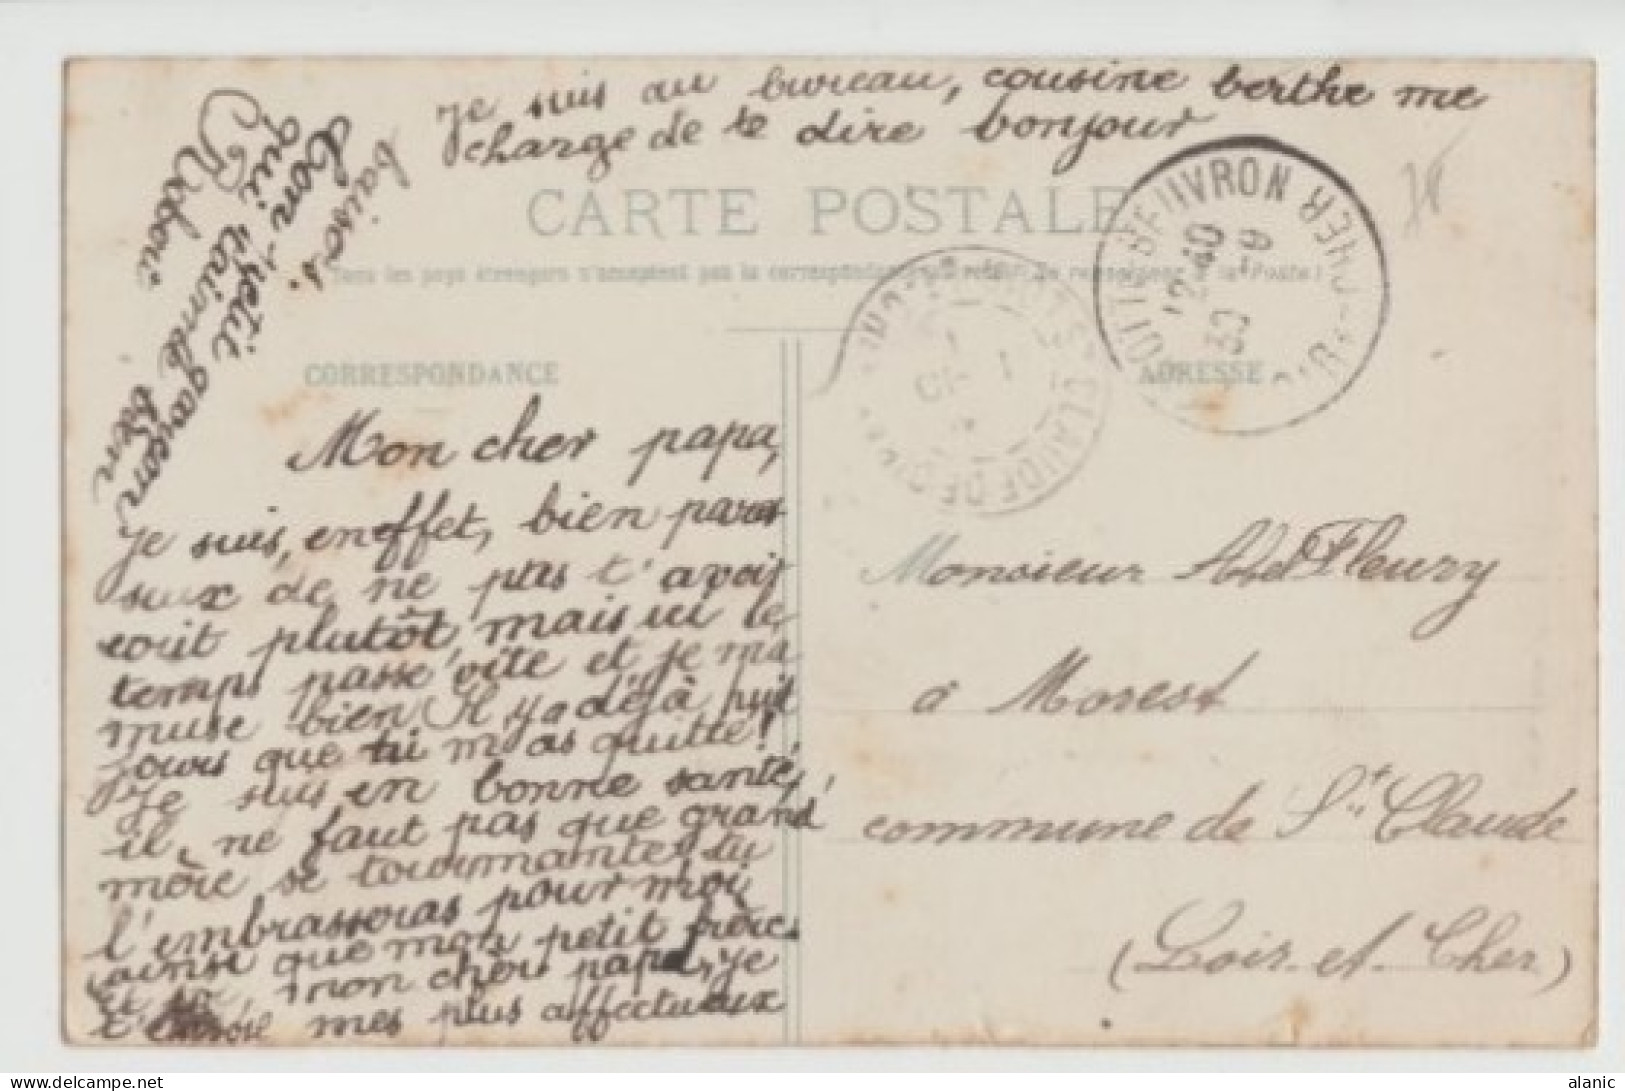 Je suis au bureau, cousine berthe me
charge de te dire bonjour
CARTE POSTALE
Tous les pays étrangers n'acceptent pas la correspondance au recto (Se renseigner à la Poste)
CORRESPONDANCE
ADRESSE
NEUVRON
12 40
30 -9
CHER
ST CLAUDE DE DIRAY
Mon cher papa,
Je suis, en effet, bien pares
seux de ne pas t'avoir
ecrit plutôt, mais ici le
temps passe vite et je ma
muse bien Il y a déjà huit
jours que tu m'as quitté!
Je suis en bonne santé,
il ne faut pas que grand
mère se tourmante, tu
l'embrasseras pour moi,
ainsi que mon petit frère
et mon chère papa, je
t'envoie mes plus affectueux
baisers.
Ton petit garçon
qui t'aime bien
Monsieur Fleury
à Morest
commune de St Claude
(Loir-et-Cher)
delcampe.net
alanic